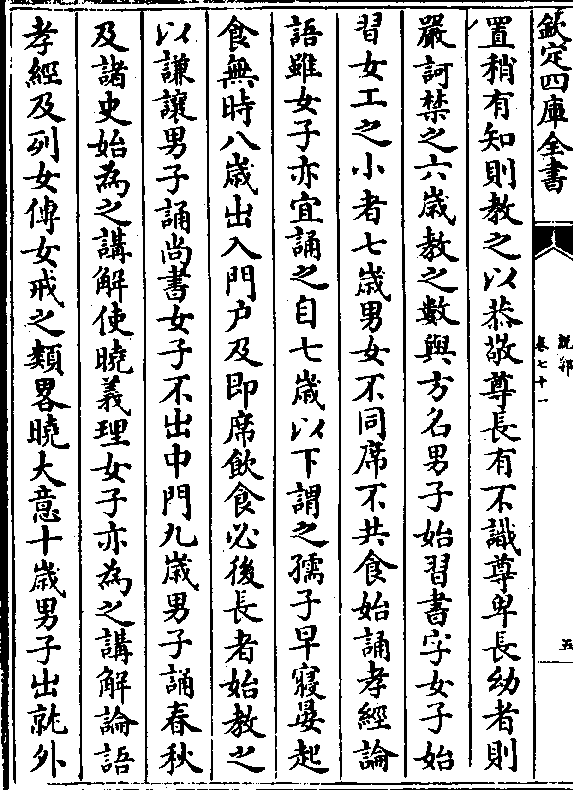 欽定四庫全書
說郛
卷七十一
五
置稍有知則教之以恭敬尊長有不識尊卑長幼者則
嚴訶禁之六歲教之數與方名男子始習書字女子始
習女工之小者七歲男女不同席不共食始誦孝經論
語雖女子亦宜誦之自七歲以下謂之孺子早寢晏起
食無時八歲出入門户及即席飲食必後長者始教之
以謙讓男子誦尚書女子不出中門九歲男子誦春秋
及諸史始為之講解使曉義理女子亦為之講解論語
孝經及列女傳女戒之類畧曉大意十歲男子出就外